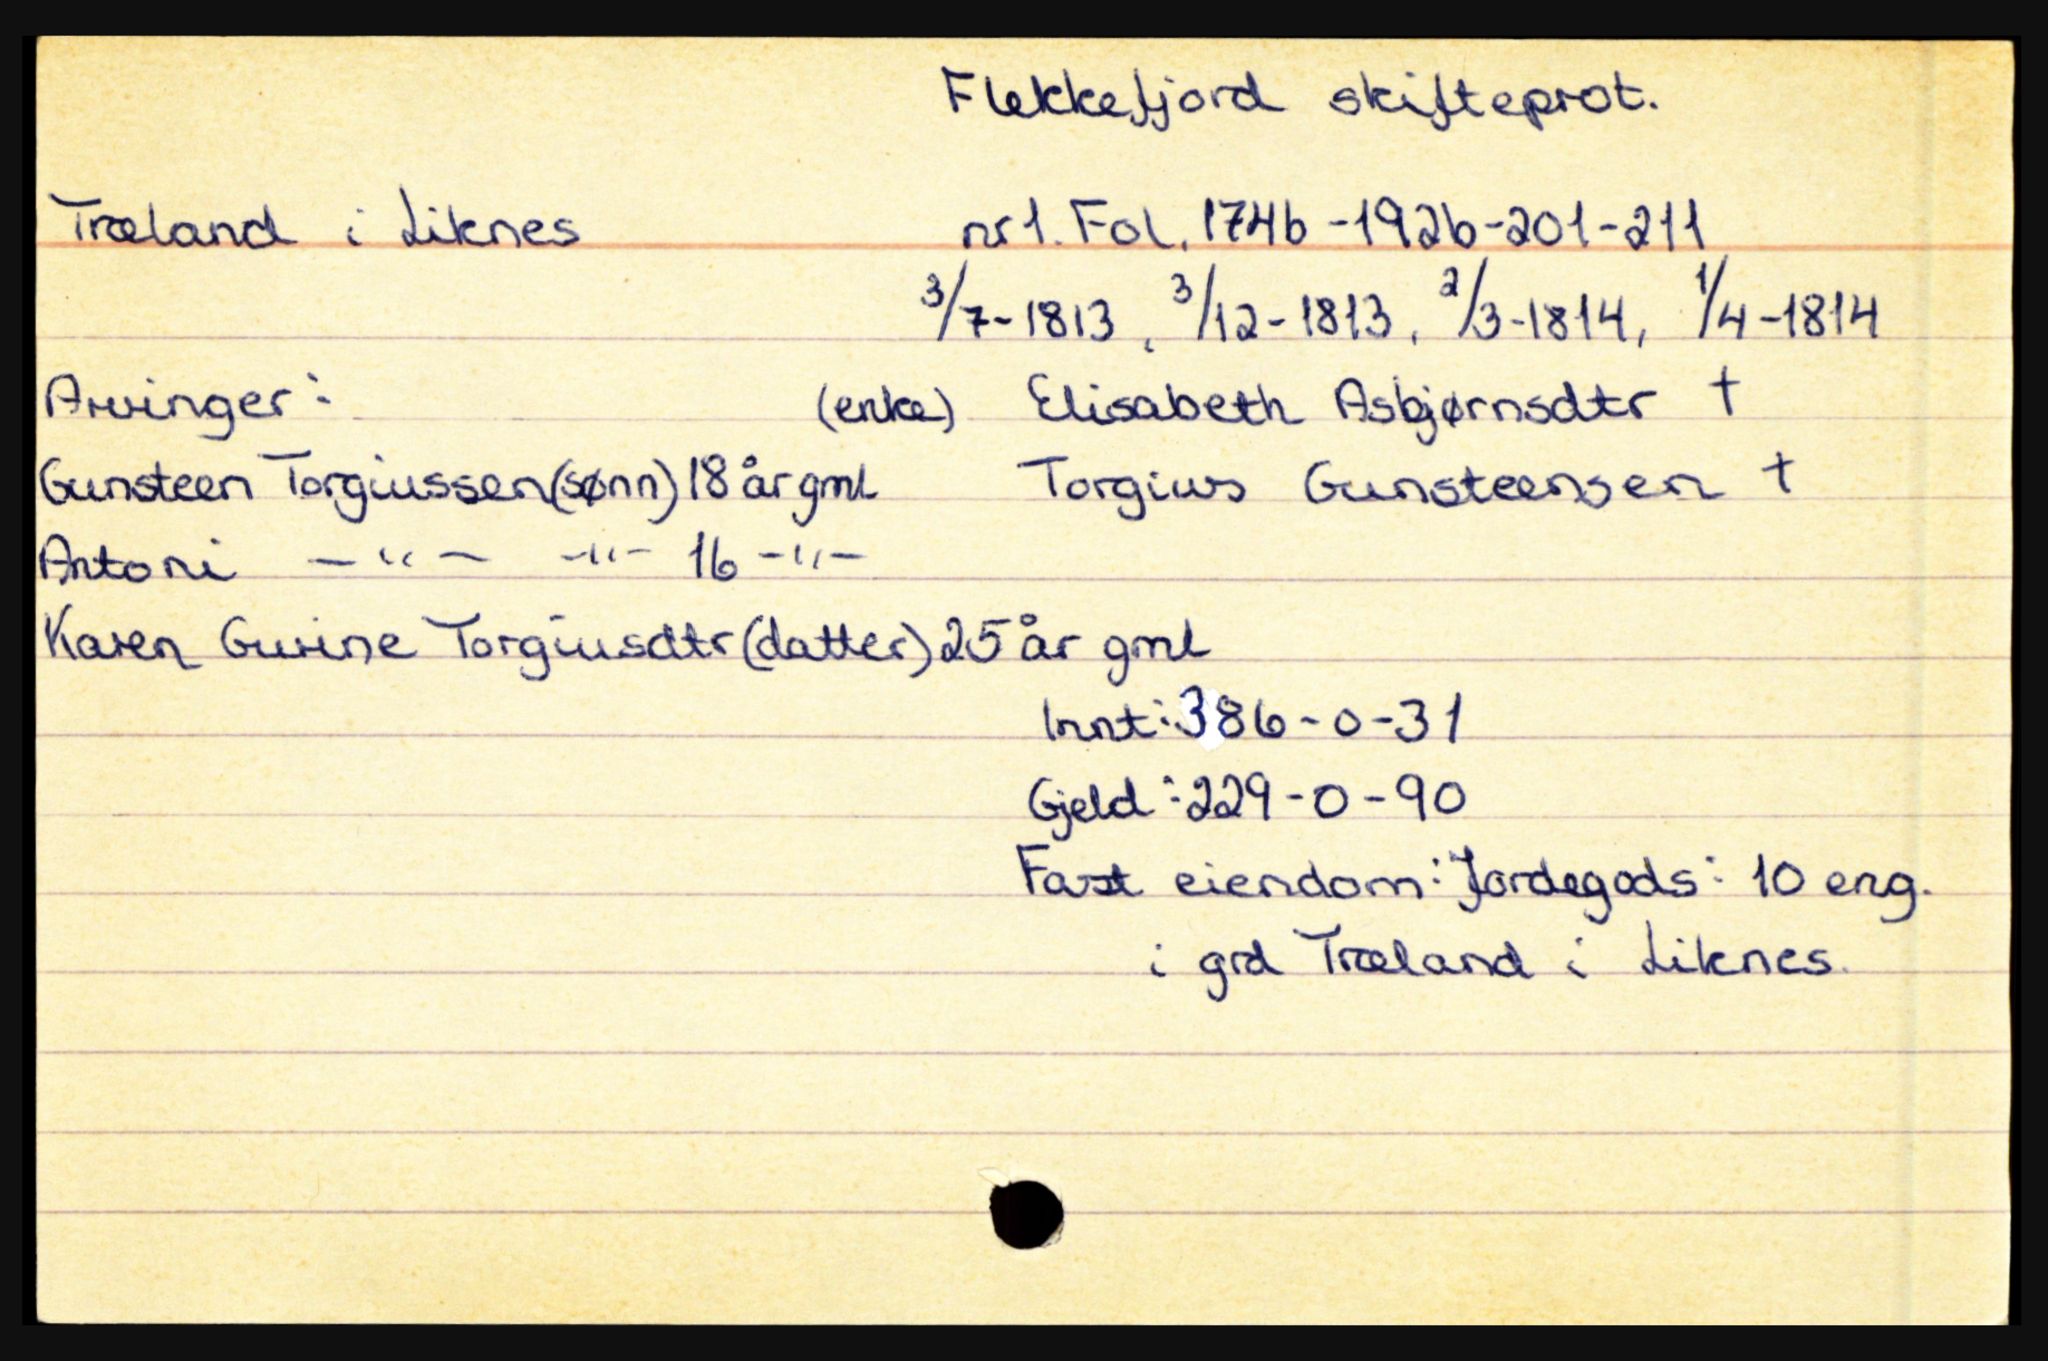 Flekkefjord skifteprot.
Træland i Liknes nr 1. Fol. 174b-192b-201-211
3/7-1813, 3/12-1813, 2/3-1814, 1/4-1814
Arvinger: (enke) Elisabeth Asbjørnsdtr †
Gunsteen Torgiussen (sønn) 18 år gml Torgius Gunsteensen †
Antoni -"- -"- 16 -"-
Karen Gurine Torgiusdtr (datter) 25 år gml
Innt: 386-0-31
Gjeld: 229-0-90
Fast eiendom: Jordegods: 10 eng.
i grd Træland i Liknes.